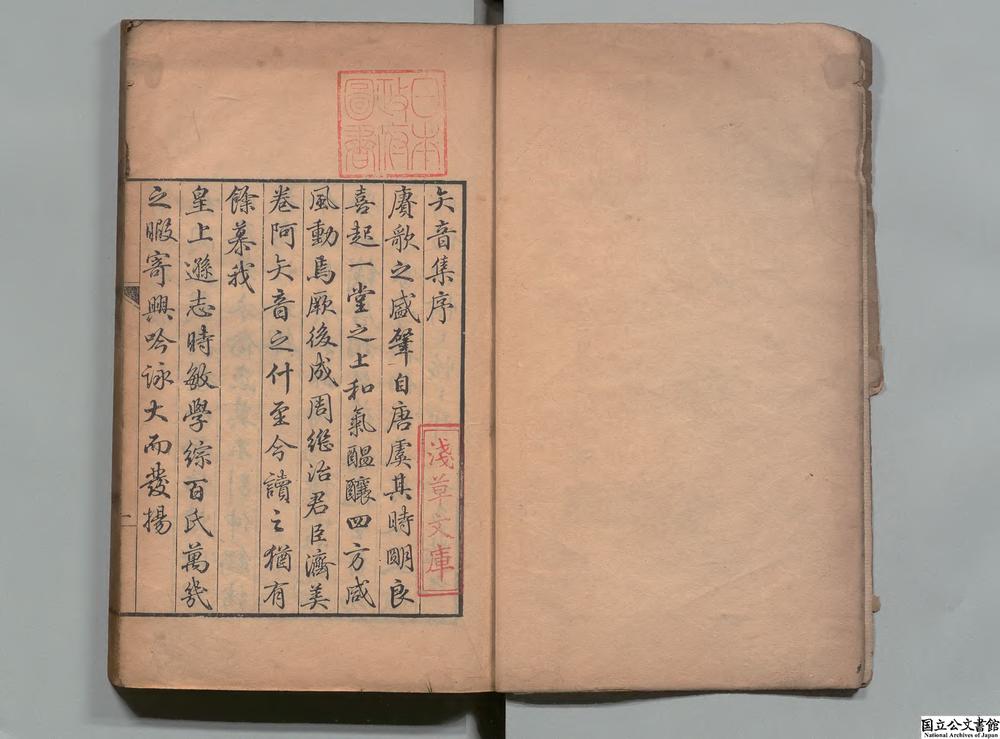 日本
政府
圖書
矢音集序
賡歌之盛肇自唐虞其時明良
喜起一堂之上和氣醞釀四方咸
風動焉厥後成周繼治君臣濟美
卷阿矢音之什至今讀之猶有
餘慕我
皇上遜志時敏學綜百氏萬幾
之暇寄興吟詠大而發揚
淺草文庫
一
国立公文書館
National Archives of Japan